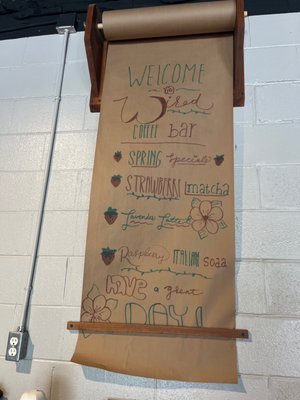 WELCOME
TO
Wired
COFFEE bar
SPRING Specials
STRAWBERRI Matcha
Lavender Latte
Raspberry ITALIAN SODA
HAVE a great
DAY!